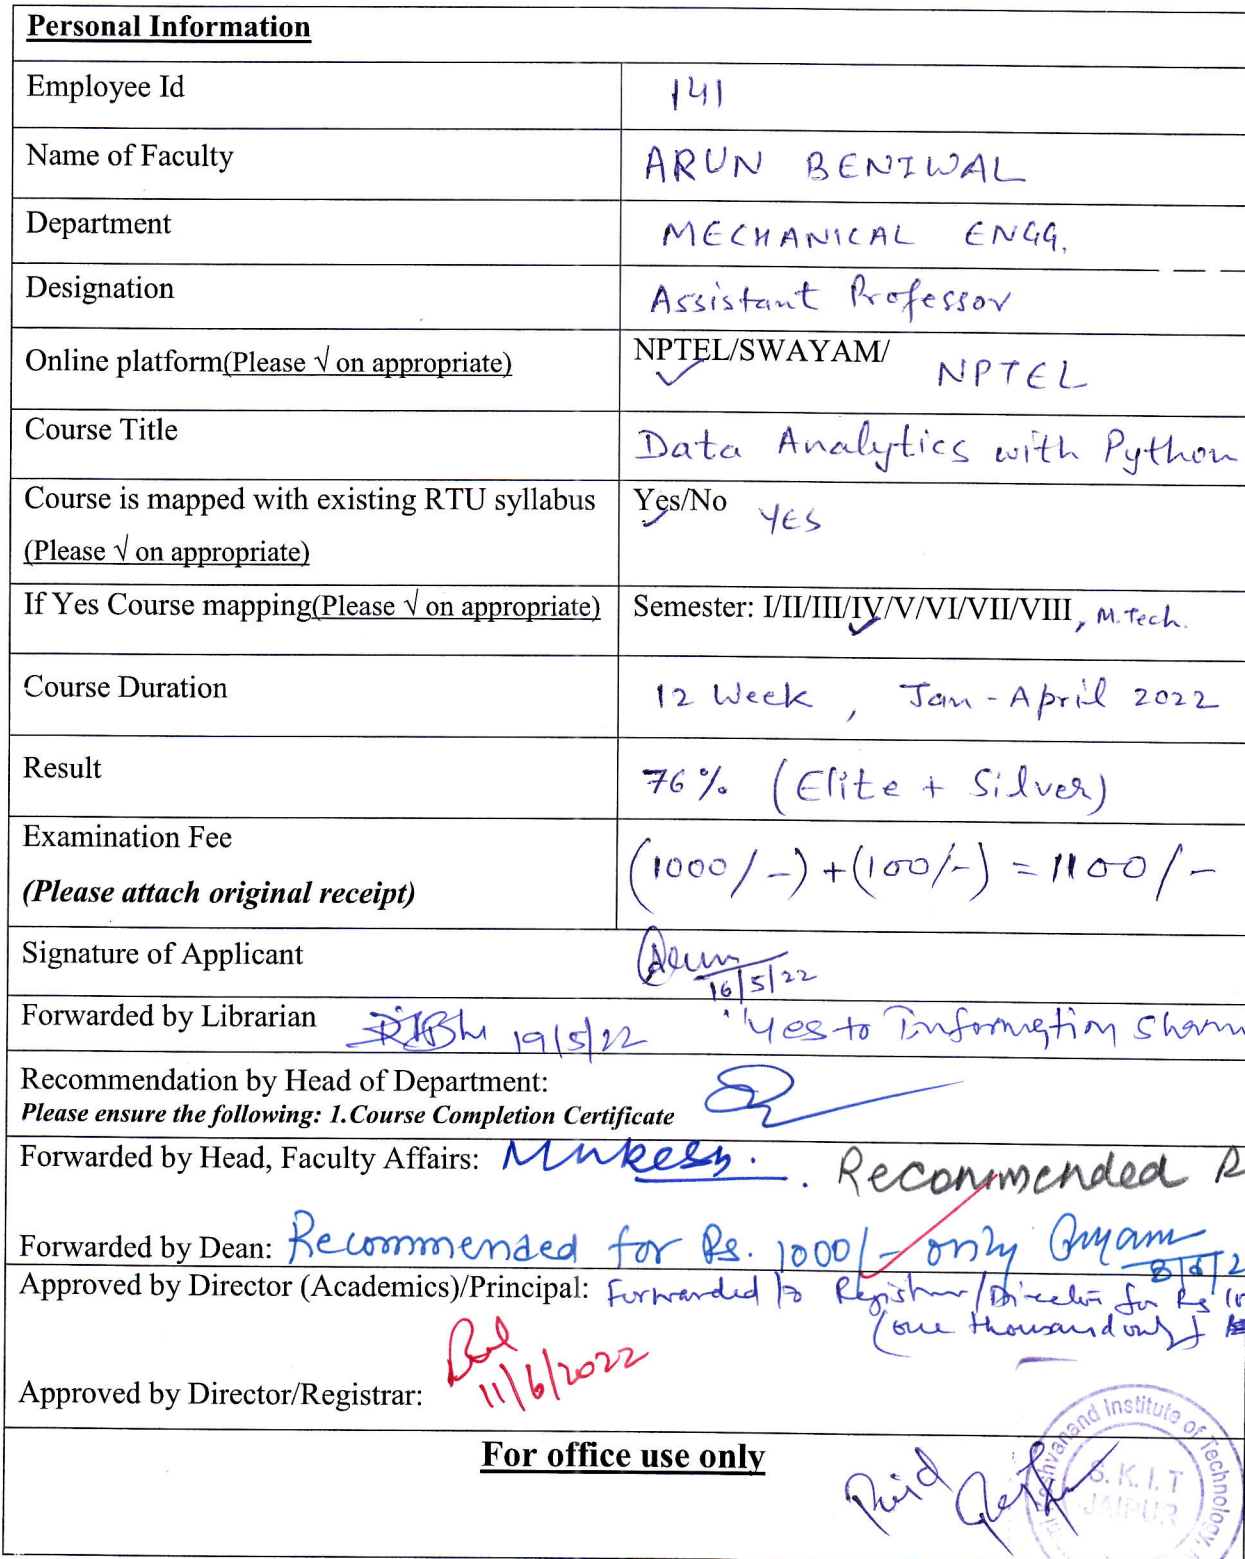 Personal Information
Employee Id 141
Name of Faculty ARUN BENIWAL
Department MECHANICAL ENGG.
Designation Assistant Professor
Online platform(Please √ on appropriate) NPTEL/SWAYAM/ NPTEL
Course Title Data Analytics with Python
Course is mapped with existing RTU syllabus Yes/No YES
(Please √ on appropriate)
If Yes Course mapping(Please √ on appropriate) Semester: I/II/III/IV/V/VI/VII/VIII, M.Tech.
Course Duration 12 Week, Jan - April 2022
Result 76% (Elite + Silver)
Examination Fee (1000/-) + (100/-) = 1100/-
(Please attach original receipt)
Signature of Applicant Arun
16/5/22
Forwarded by Librarian 19/5/22 "Yes to Information
Recommendation by Head of Department:
Please ensure the following: 1.Course Completion Certificate
Forwarded by Head, Faculty Affairs: Mukesh. Recommended R
Forwarded by Dean: Recommended for Rs. 1000/- only
Approved by Director (Academics)/Principal: Forwarded to Registrar/Director for Rs
(one thousand only)
11/6/2022
Approved by Director/Registrar:
For office use only
Paid
Institute of Technology
S. K. I. T
JAIPUR